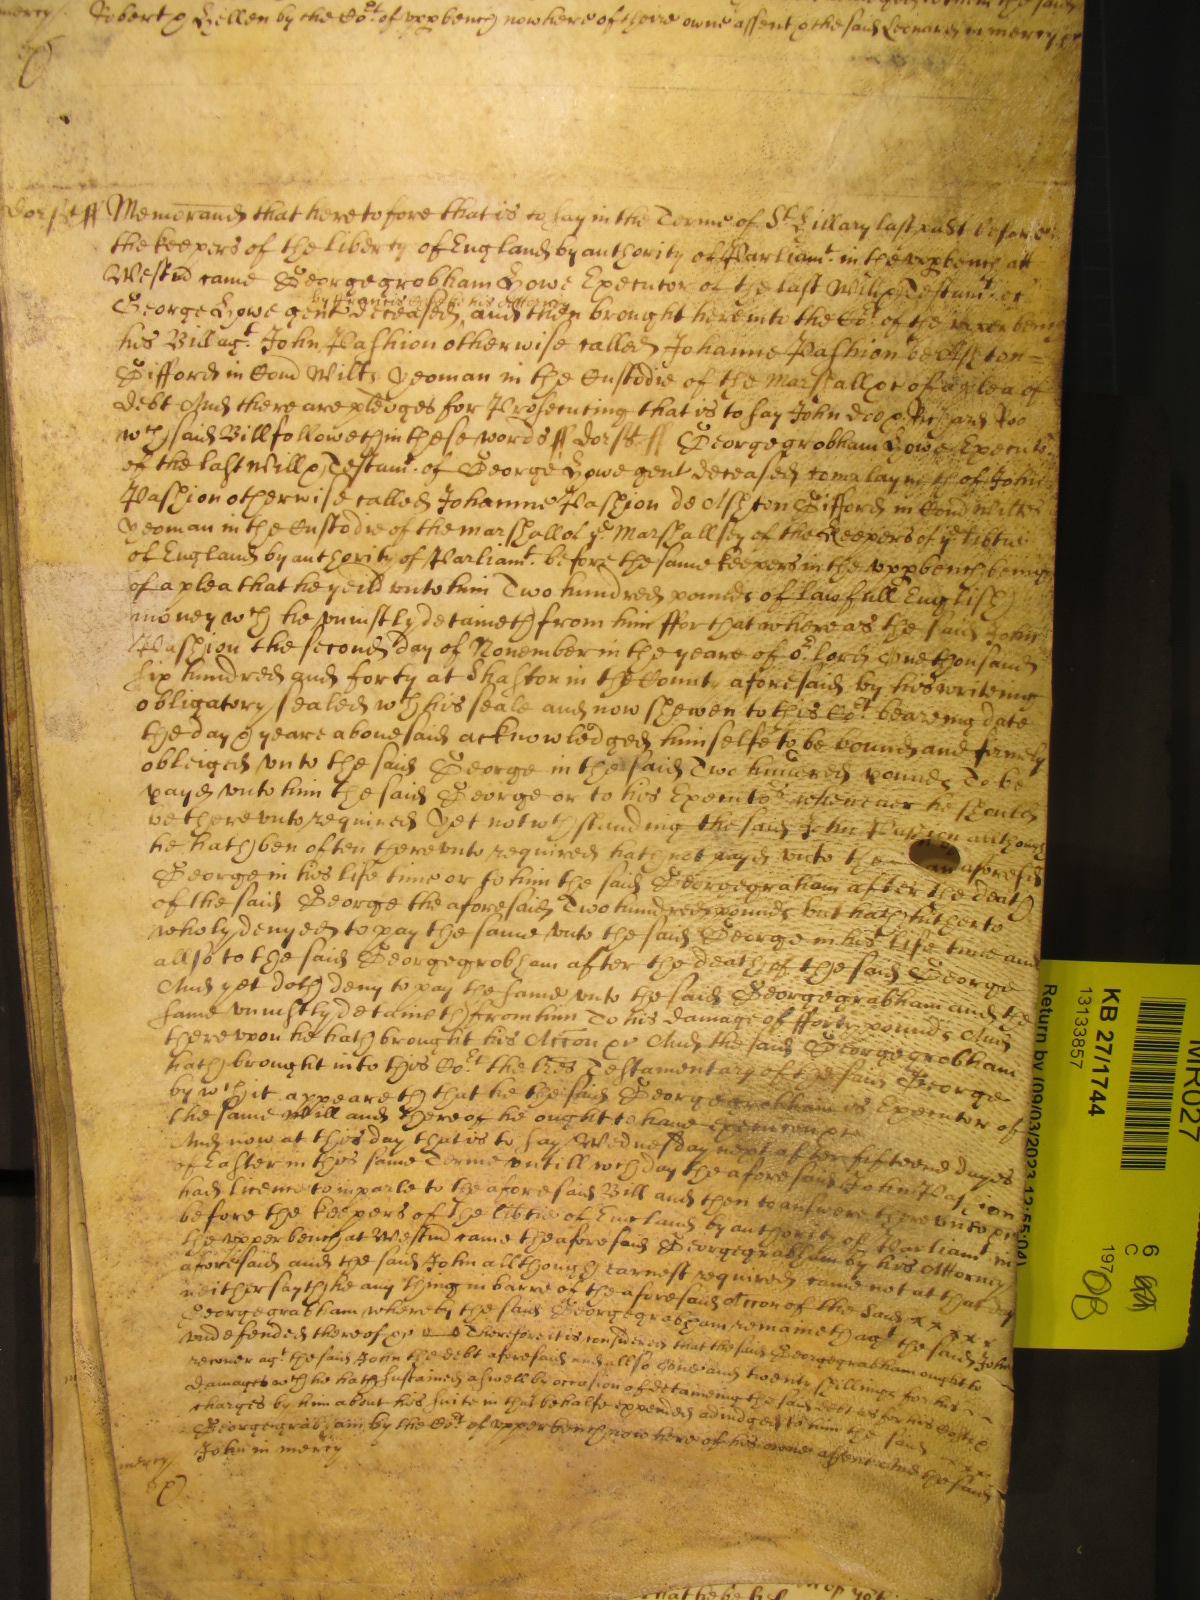 Robert & Hillen by the Cot of upp bench now here of theire owne assent & the said Leonard in mercy &c
mercy
Dorsst ss Memorand that heretofore that is to say in the Terme of St Hillary last past before
the keepers of the liberty of England by authority of Parliamt in the upp bench att
Westmr came Georgegrobham Howe Executor of the last Will & Testamt of
by Francis his Attorney
George Howe gent deceased and then brought here into the Cot of the upper bench
his Bill agt John Pashion otherwise called Johanne Pashion de Ashton =
Gifford in Com Wilts yeoman in the Custodie of the Marshall &c of a plea of
debt And there are pledges for Prosecuting that is to say John Doo & Richard Roo
wch said Bill followeth in these words ss Dorsst ss Georgegrobham Howe Executor
of the last Will & Testamt of George Howe gent deceased complayneth of John
Pashion otherwise called Johanne Pashion de Ashton Gifford in Com Wiltes
yeoman in the Custodie of the marshall of ye Marshallsey of the Keepers of ye libtie
of England by authority of Parliamt before the same keepers in the upp bench being
of a plea that he yeild unto him Two hundred pounds of lawfull English
money wch he uniustly detaineth from him ffor that whereas the said John
Pashion the second day of November in the yeare of or Lord One thousand
six hundred and forty at Shaston in the County aforesaid by his writeing
obligatory sealed wth his seale and now shewen to this Cot beareing date
the day & yeare abovesaid acknowledged himselfe to be bound and firmely
obleiged unto the said George in the said Two hundred pounds To be
payd unto him the said George or to his Executors whenever he should
be thereunto required Yet notwthstanding the said John Pashion although
he hath ben often thereunto required hath not payd unto the aforesd
George in his life time or to him the said Georgegrabham after the death
of the said George the aforesaid Two hundred pounds but hath hitherto
wholy denyed to pay the same unto the said George in his life time and
allso to the said Georgegrobham after the death of the said George
And yet doth deny to pay the same unto the said Georgegrabham and the
same uniustly detaineth from him To his damage of fforty pounds And
thereupon he hath brought his Accon &c And the said Georgegrobham
hath brought into this Cot the lres Testamentary of the said George
by wch it appeareth that he the said Georgegrobham is Executor of
the same Will and thereof he ought to have execucon &c
And now at this day that is to say Wednesday next after fifteene dayes
of Easter in this same Terme untill wch day the aforesaid John Pashion
had licence to imparle to the aforesaid Bill and then to answere thereunto &c
before the keepers of the libtie of England by authority of Parliamt in
the upper bench at Westmr came the aforesaid Georgegrabham by his Attorney
aforesaid and the said John allthough earnest required came not at that day
neither sayth he any thing in barre of the aforesaid Accon of the said
Georgegrabham whereby the said Georgegrobham remaineth agt the said John
undefended thereof &c Therefore it is considered that the said Georgegrabham ought to
recover agt the said John the debt aforesaid and allso One and twenty shillings for his
damages wch he hath sustained aswell by occasion of detaineing the said debt as for his Costes
charges by him about his suite in that behalfe expended adiudged to him the said
Georgegrabham by the Cot of upper bench now here of his owne assent And the said
John in mercy
mercy
MR027
KB 27/1744
13133857
Return by (09/03/2023 12:55:04)
6
C
197